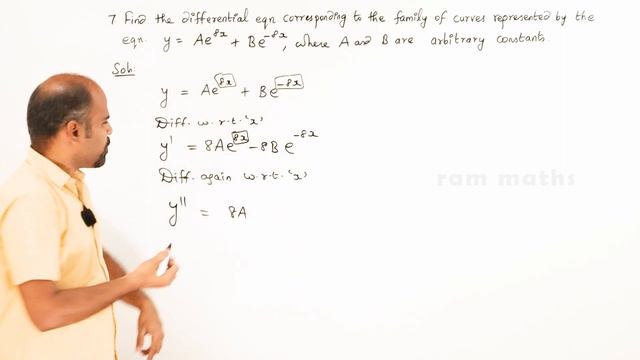 7 Find the differential eqn corresponding to the family of curves represented by the
eqn. y = Ae^8x + Be^-8x, where A and B are arbitrary constants.
Soln:
y = Ae^8x + Be^-8x
Diff. w.r.t. 'x'
y' = 8Ae^8x - 8Be^-8x
Diff. again w.r.t. 'x'
y'' = 8A
ram maths